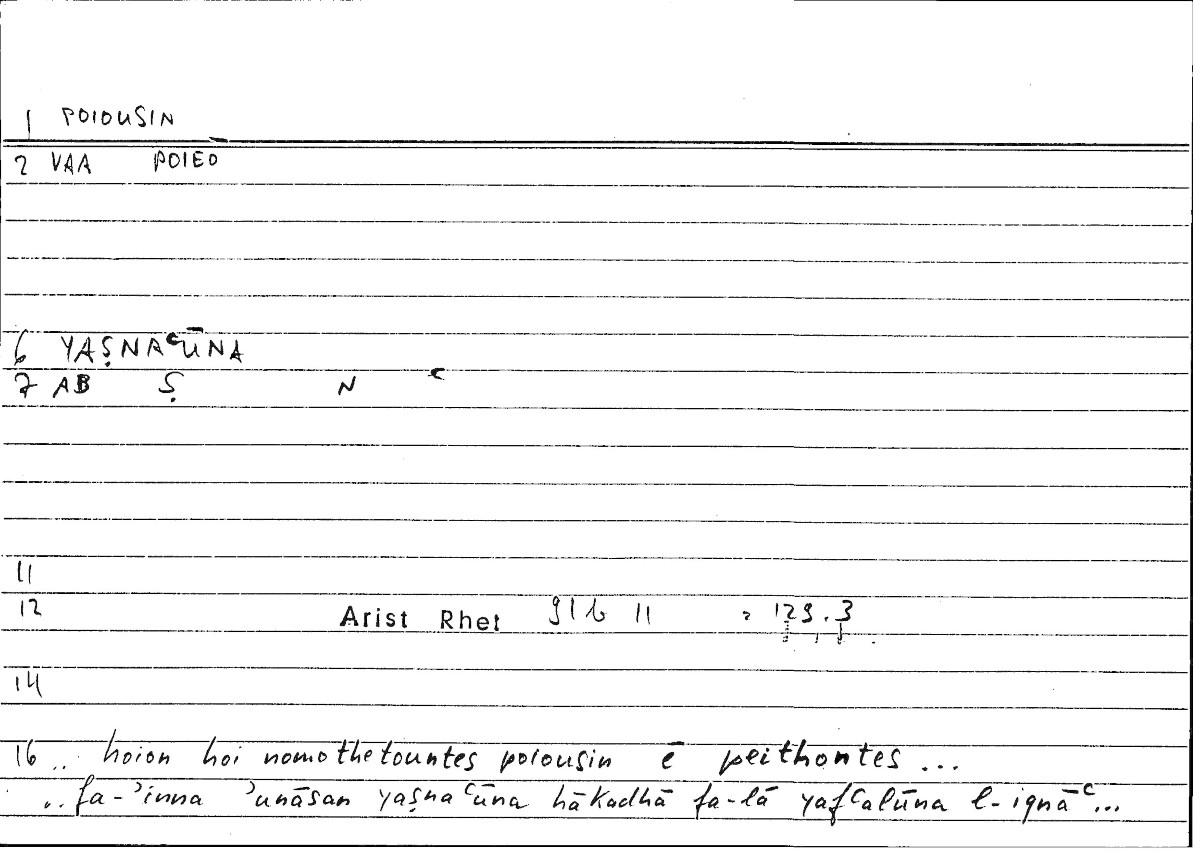 1 POIOUSIN
2 VAA POIEO
6 YAṢNAʿŪNA
7 AB Ṣ N ʿ
11
12 Arist Rhet 91b 11 = 129.3
14
16 .. hoion hoi nomothetountes poiousin ē peithontes ...
.. fa-ʾinna ʾunāsan yaṣnaʿūna hākadhā fa-lā yafʿalūna l-iqnāʿ...